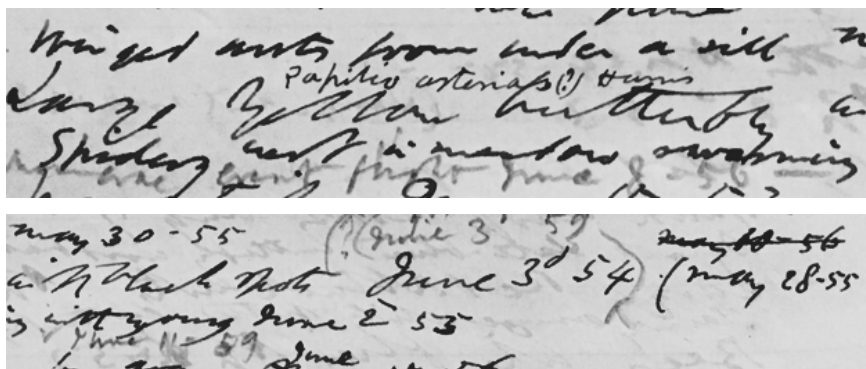 Winged ants from under a sill
Papilio asterias (?) Harris
Large Yellow butterfly
Spiders nest in meadow swarming
June 8 - 56
may 30 - 55
(? (June 3d 59
may 18 - 56
with black spots June 3d 54) (may 28 - 55
with young June 2 55
June 11 - 59
June